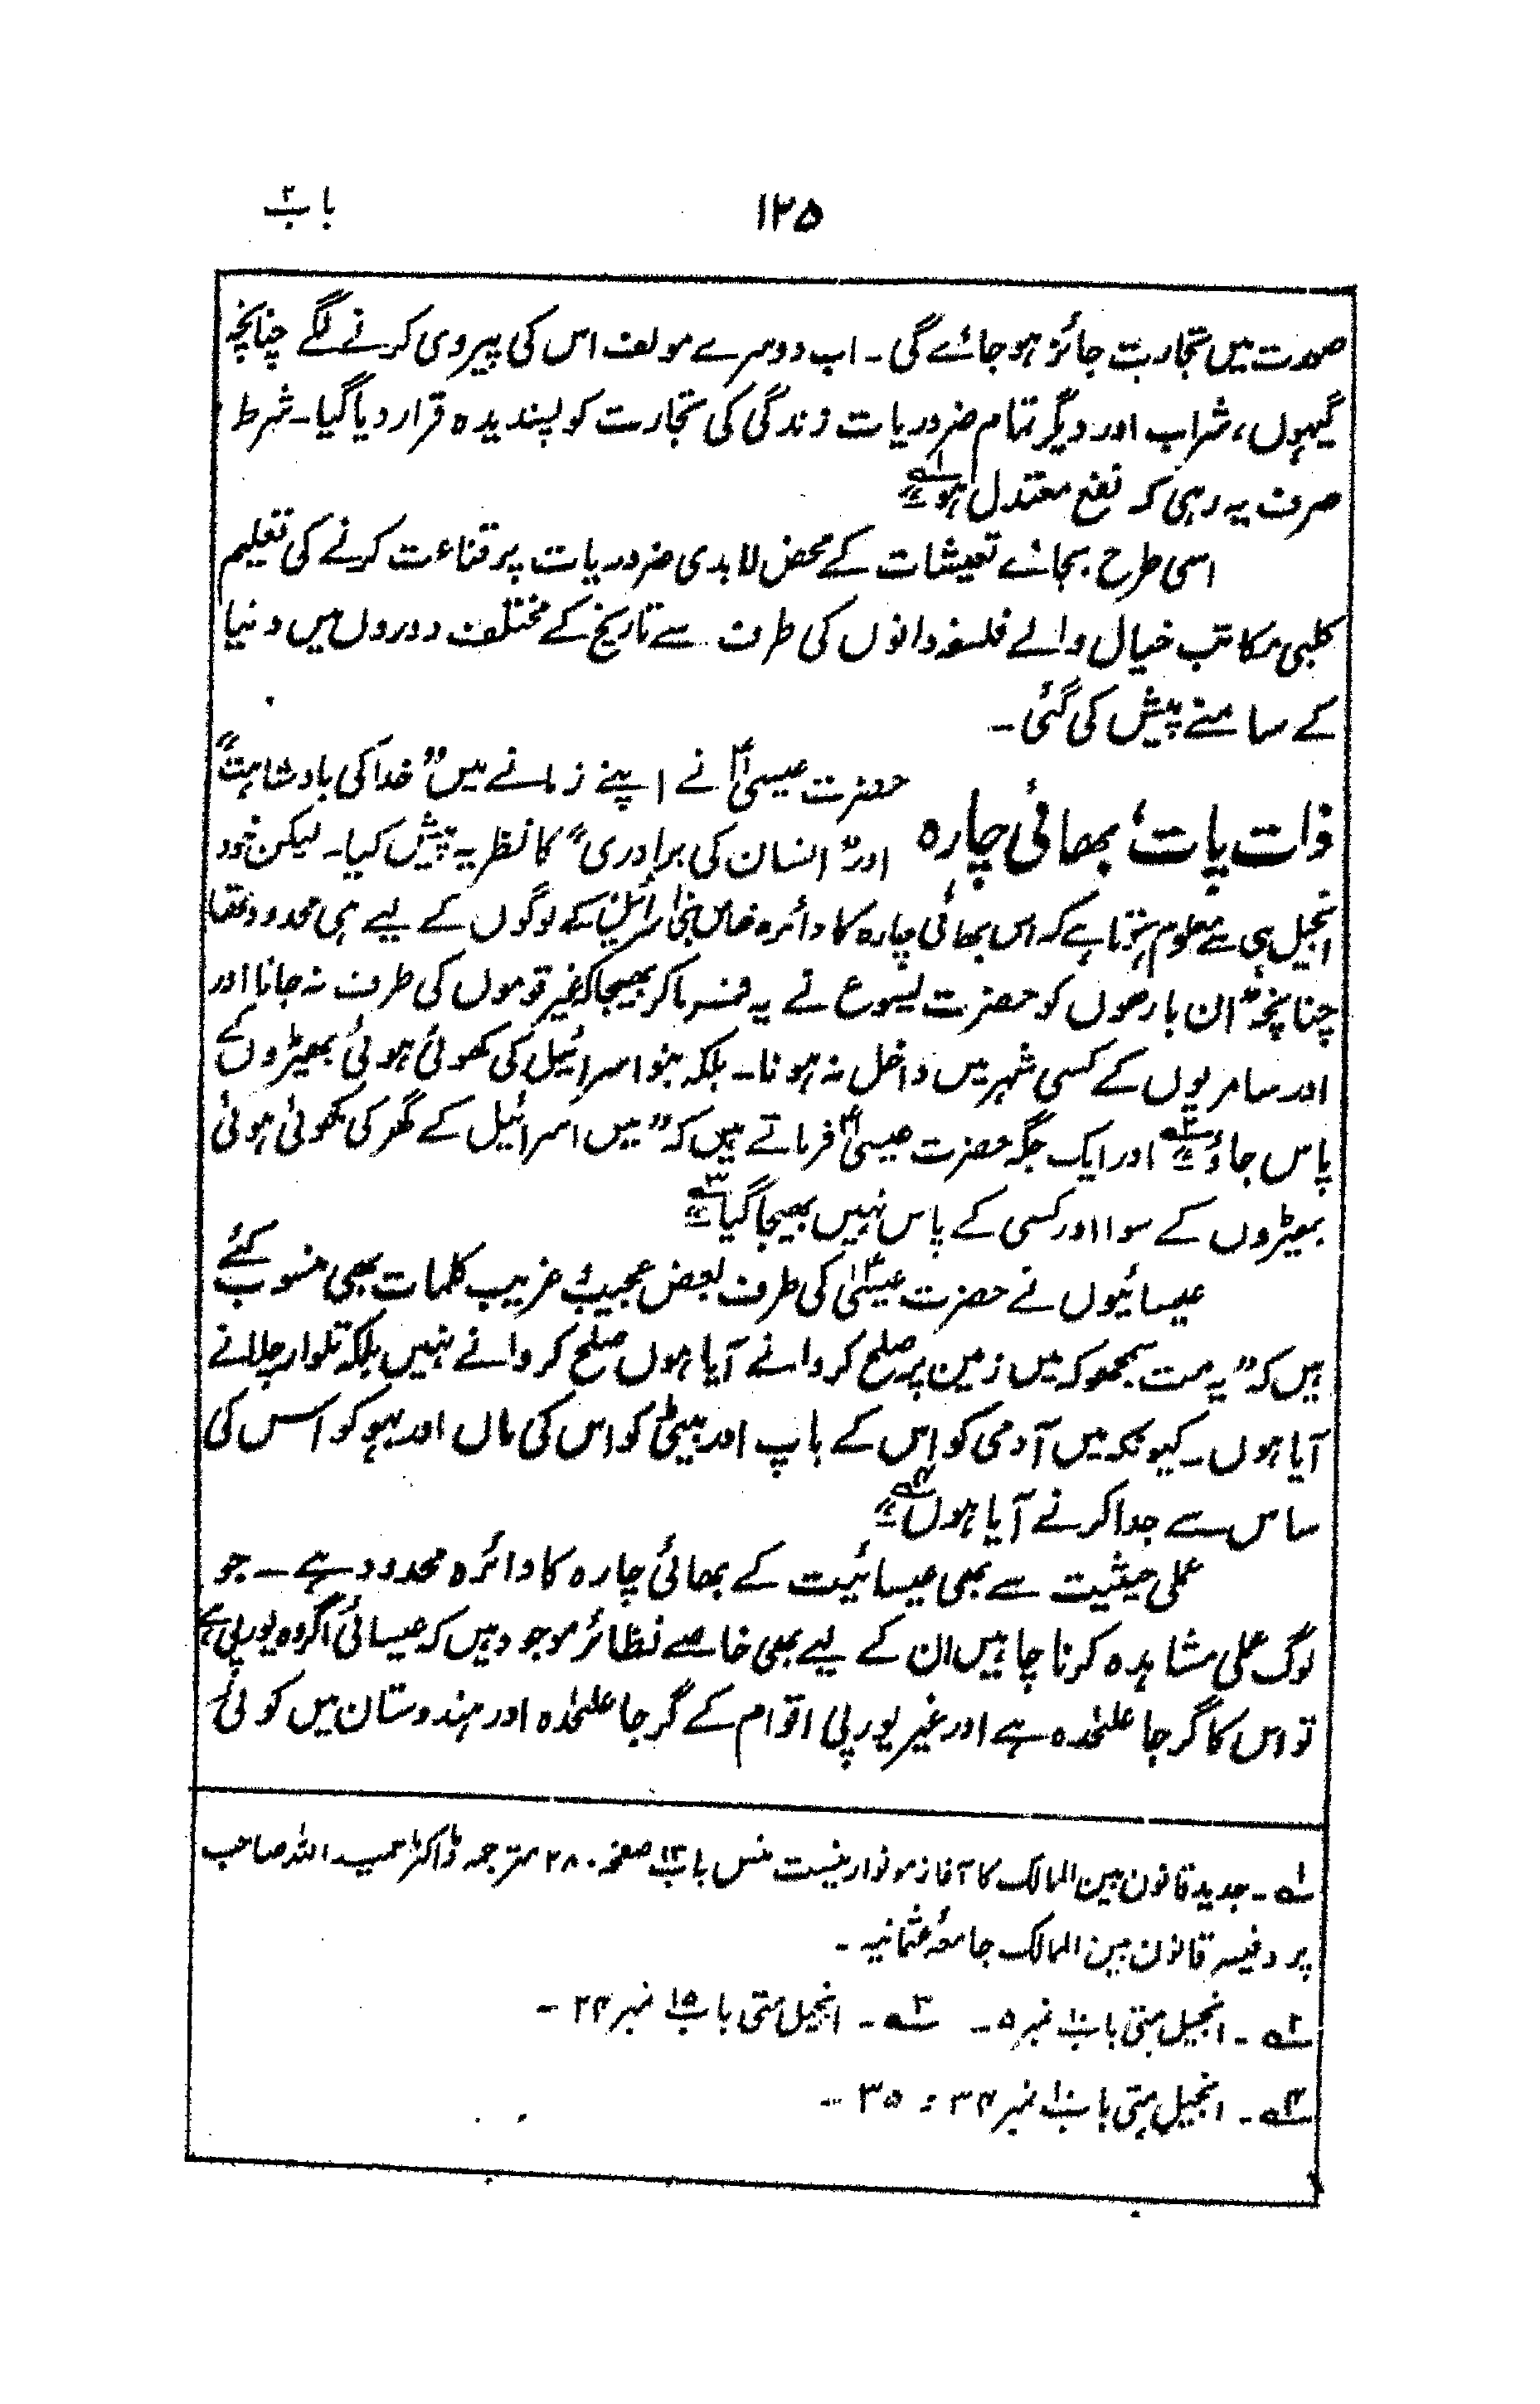 ۱۲۵ باب ۲
صورت میں تجارت جائز ہو جائے گی۔ اب دوسرے مولف اس کی پیروی کرنے لگے چنانچہ
گیہوں، شراب اور دیگر تمام ضروریات زندگی کی تجارت کو پسندیدہ قرار دیا گیا۔ شرط
صرف یہ رہی کہ نفع معتدل ہو"۱؎
اسی طرح بجائے تعیشات کے محض لابدی ضروریات پر قناعت کرنے کی تعلیم
کلبی مکاتب خیال والے فلسفہ دانوں کی طرف سے تاریخ کے مختلف دوروں میں دنیا
کے سامنے پیش کی گئی۔
ذات پات، بھائی چارہ
حضرت عیسیٰؑ نے اپنے زمانے میں "خدا کی بادشاہت"
اور "انسان کی برادری" کا نظریہ پیش کیا۔ لیکن خود
انجیل ہی سے معلوم ہوتا ہے کہ اس بھائی چارہ کا دائرہ خاص بنی اسرائیل کے لوگوں کے لیے ہی محدود تھا
چنانچہ "ان بارھوں کو حضرت یسوع نے یہ فرما کر بھیجا کہ غیر قوموں کی طرف نہ جانا اور
اور سامریوں کے کسی شہر میں داخل نہ ہونا۔ بلکہ بنو اسرائیل کی کھوئی ہوئی بھیڑوں کے
پاس جاؤ"۲؎ اور ایک جگہ حضرت عیسیٰؑ فرماتے ہیں کہ "میں اسرائیل کے گھر کی کھوئی ہوئی
بھیڑوں کے سوا اور کسی کے پاس نہیں بھیجا گیا"۳؎
عیسائیوں نے حضرت عیسیٰؑ کی طرف بعض عجیب و غریب کلمات بھی منسوب کئے
ہیں کہ "یہ مت سمجھو کہ میں زمین پر صلح کروانے آیا ہوں صلح کروانے نہیں بلکہ تلوار چلانے
آیا ہوں۔ کیونکہ میں آدمی کو اس کے باپ اور بیٹی کو اس کی ماں اور بہو کو اس کی
ساس سے جدا کرنے آیا ہوں"۴؎
عملی حیثیت سے بھی عیسائیت کے بھائی چارہ کا دائرہ محدود ہے۔ جو
لوگ عملی مشاہدہ کرنا چاہیں ان کے لیے بھی خاصے نظائر موجود ہیں کہ عیسائی اگر وہ یورپی ہے
تو اس کا گرجا علیحدہ ہے اور غیر یورپی اقوام کے گرجا علیحدہ اور ہندوستان میں کوئی
۱؎۔ جدید قانون بین الممالک کا آغاز مولفہ ارنیست نس باب ۱۳ صفحہ ۲۸۰ مترجمہ ڈاکٹر حمید اللہ صاحب
پروفیسر قانون بین الممالک جامعہ عثمانیہ۔
۲؎۔ انجیل متی باب ۱۰ نمبر ۵۔ ۳؎۔ انجیل متی باب ۱۵ نمبر ۲۴۔
۴؎۔ انجیل متی باب ۱۰ نمبر ۳۴، ۳۵۔